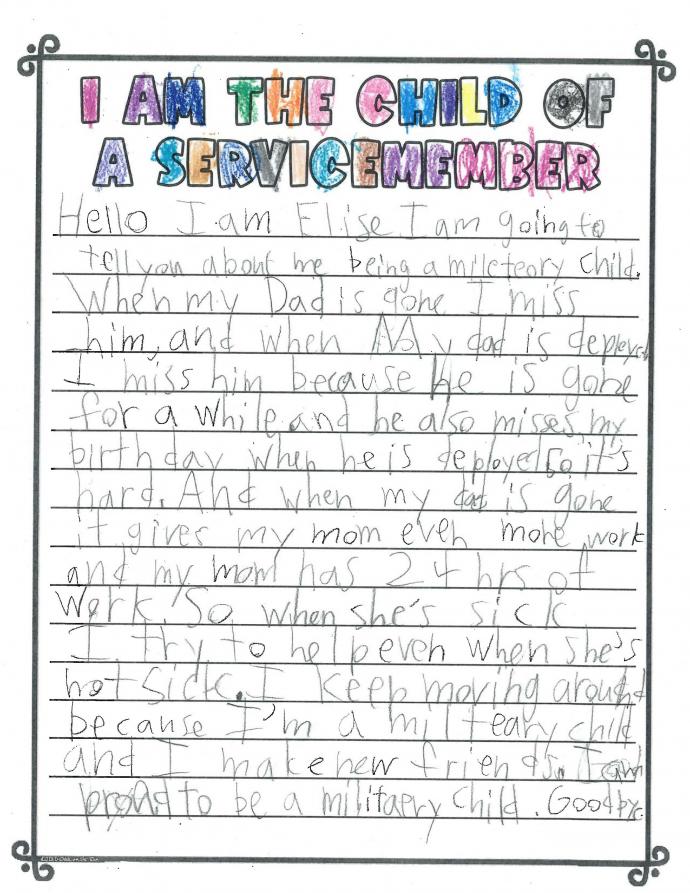 I AM THE CHILD OF
A SERVICEMEMBER
Hello I am Elise I am going to
tell you about me being a mileteory child.
When my Dad is gone I miss
him, and when My dad is deployed
I miss him because He is gone
for a while and he also misses my
birthday when he is deployed so it's
hard. And when my dad is gone
it gives my mom even more work
and my mom has 24 hrs of
work. So when she's sick
I try to help even when she's
not sick. I keep moving around
because I'm a milteary child
and I make new friends. I am
proud to be a militaery child. Goodbye